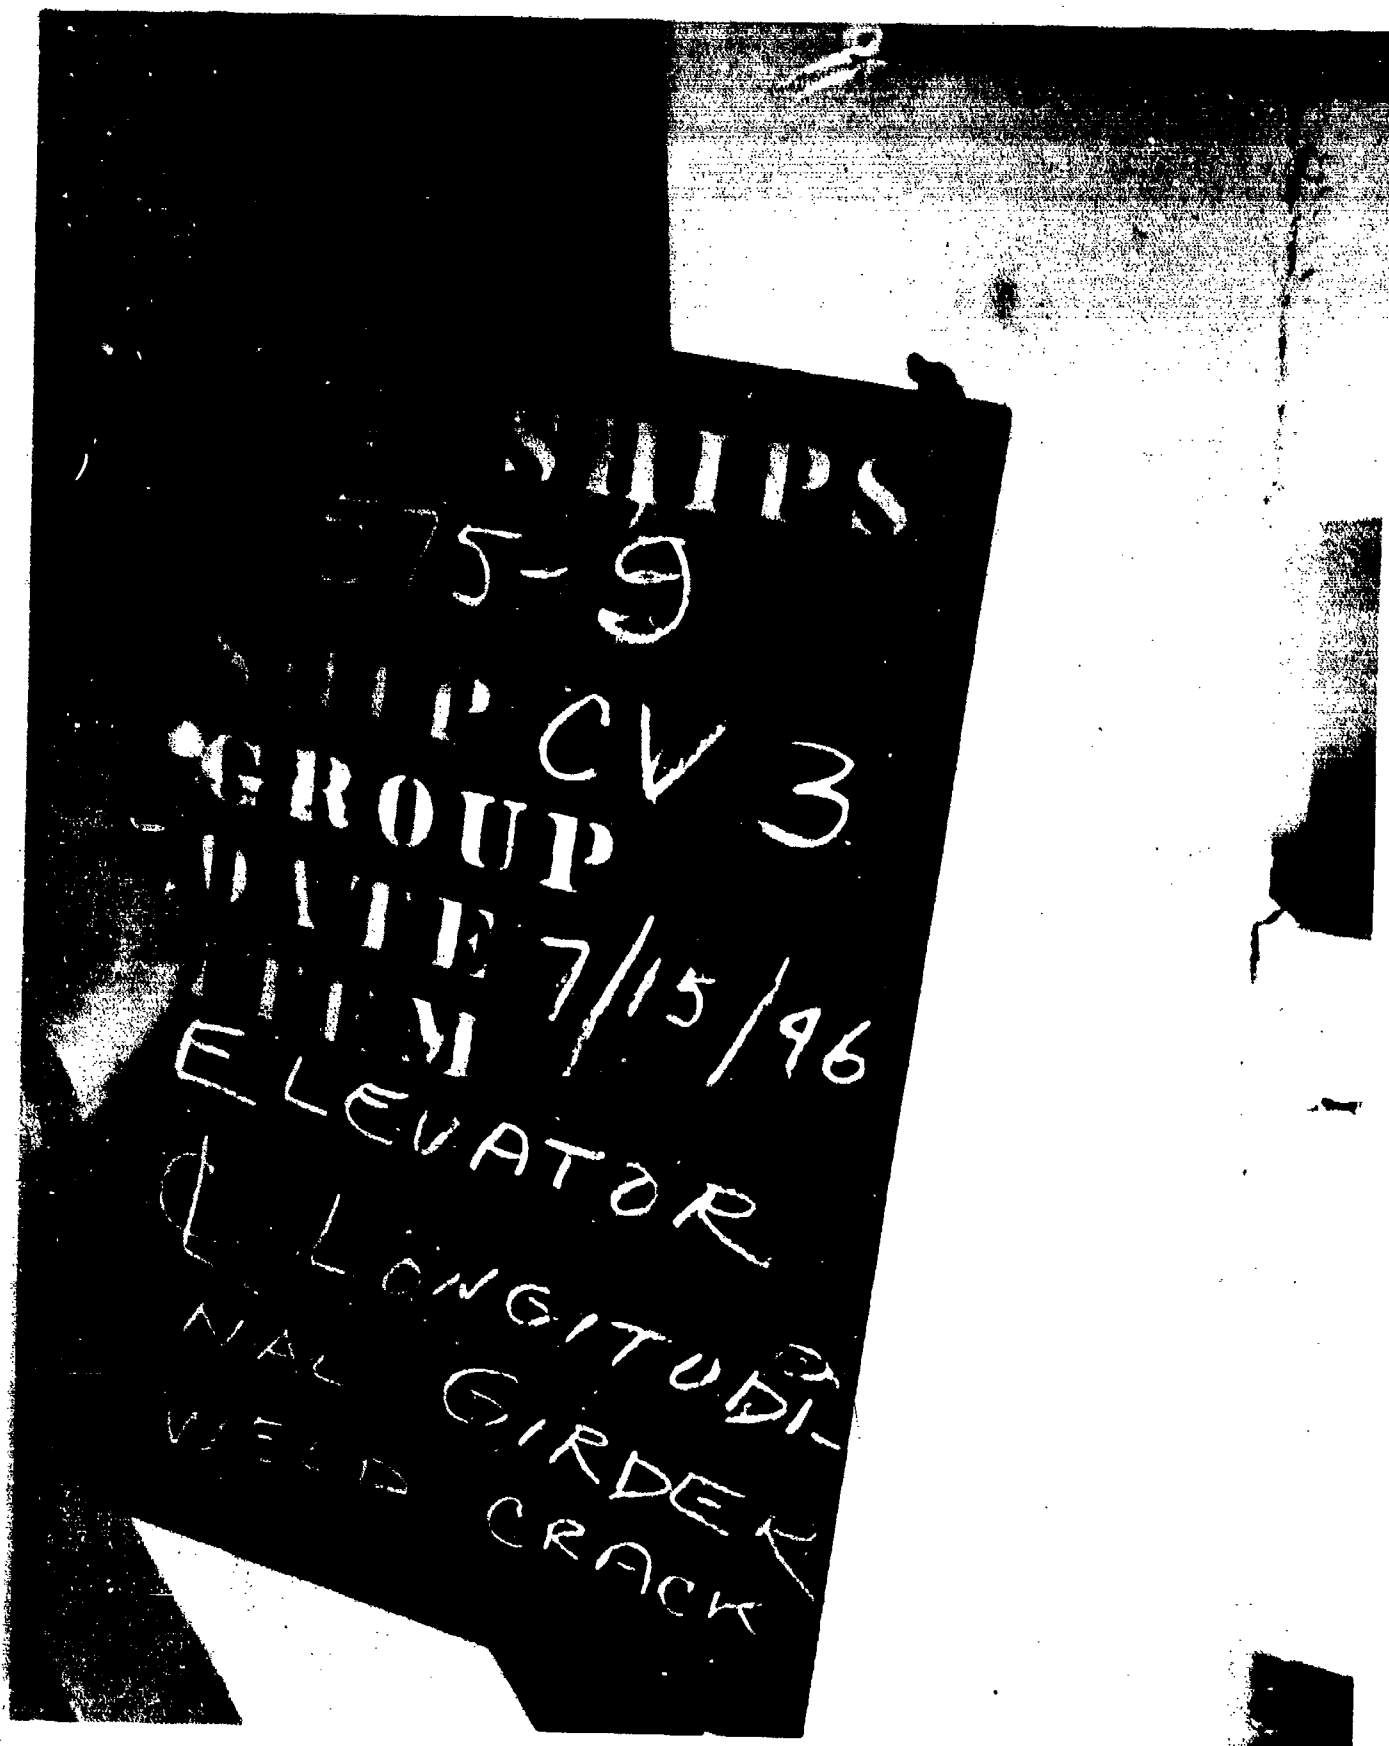 SHIPS
375-9
SHIP CV 3
GROUP
DATE 7/15/46
ITEM
ELEVATOR
℄ LONGITUDI-
NAL GIRDER
WELD CRACK